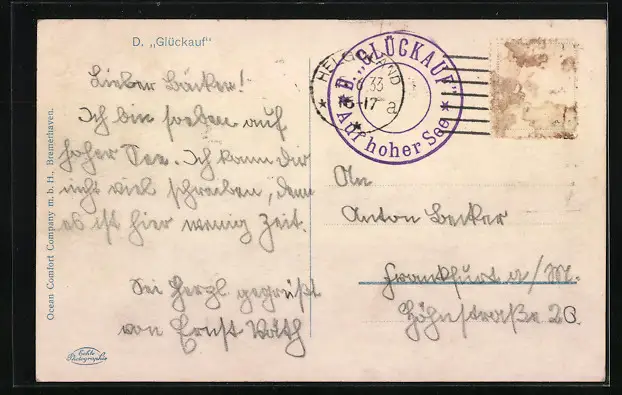 D. „Glückauf"
HELGOLAND
33
-17 a
D. „GLÜCKAUF"
★ Auf hoher See ★
Lieber Bäcker!
Ich bin soeben auf
hoher See. Ich kann dir
nicht viel schreiben, denn
es ist hier wenig Zeit.
Sei herzl gegrüßt
von Ernst Väth
An
Anton Becker
Frankfurt a/M.
Höhnstraße 20.
Ocean Comfort Company m. b. H., Bremerhaven.
Echte
Photographie